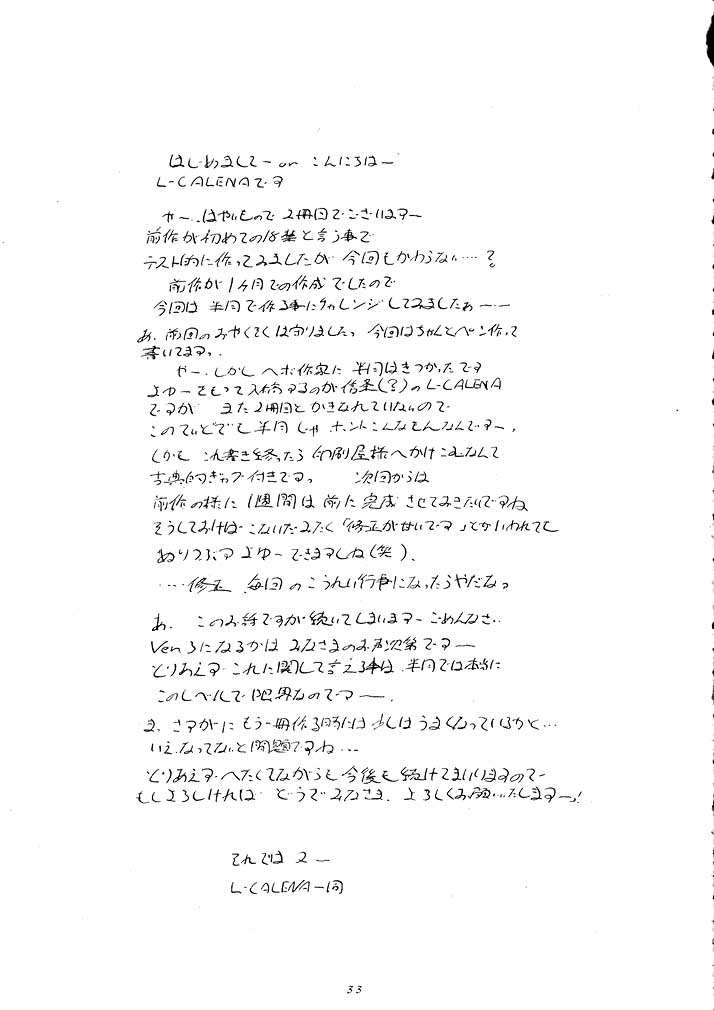 はじめまして〜 or こんにちは〜
L-CALENAです
やー、はやいもので 2冊目でございますー
前作が初めての18禁と言う事で
テスト的に作ってみましたが 今回もかわらない…?
前作が1ヶ月での作成でしたので
今回は 半月で作る事にチャレンジしてみましたぁーー
あ、前回のおやくそくは守りましたっ 今回はちゃんとペン作って
書いてますっ
やー、しかし ヘボ作家に 半月はきつかったです
よゆーをもって入稿するのが信条(?)の L-CALENA
ですが まだ2冊目とかきなれていないので
このていどでも半月じゃ ホントこんなもんなんですー、
しかも これ書き終ったら 印刷屋様へかけこむなんて
古典的ギャグ付きです。 次回からは
前作の様に 1週間は 前に 完成 させておきたいですね
そうしておけば こないだみたく「修正が甘いです」とかいわれても
ぬりつぶす よゆーできますしね(笑)、
……修正 毎回の こうれい行事になったらやだなっ
あ、 このお話ですが続いてしまいますー ごめんなさい
Ver 3になるかは みなさまのお声次第ですー
とりあえず これに関して言える事は 半月では本当に
このレベルで限界なのですー。
ま、さすがに もう一冊作る頃には 少しはうまくなっているかと…
いえ、なってないと問題ですね…
とりあえず へたくてながらも 今後も 続けてまいりますので
もしよろしければ どうぞみなさま、よろしくお願いいたしますーっ!
それでは 2ー
L-CALENA一同
33